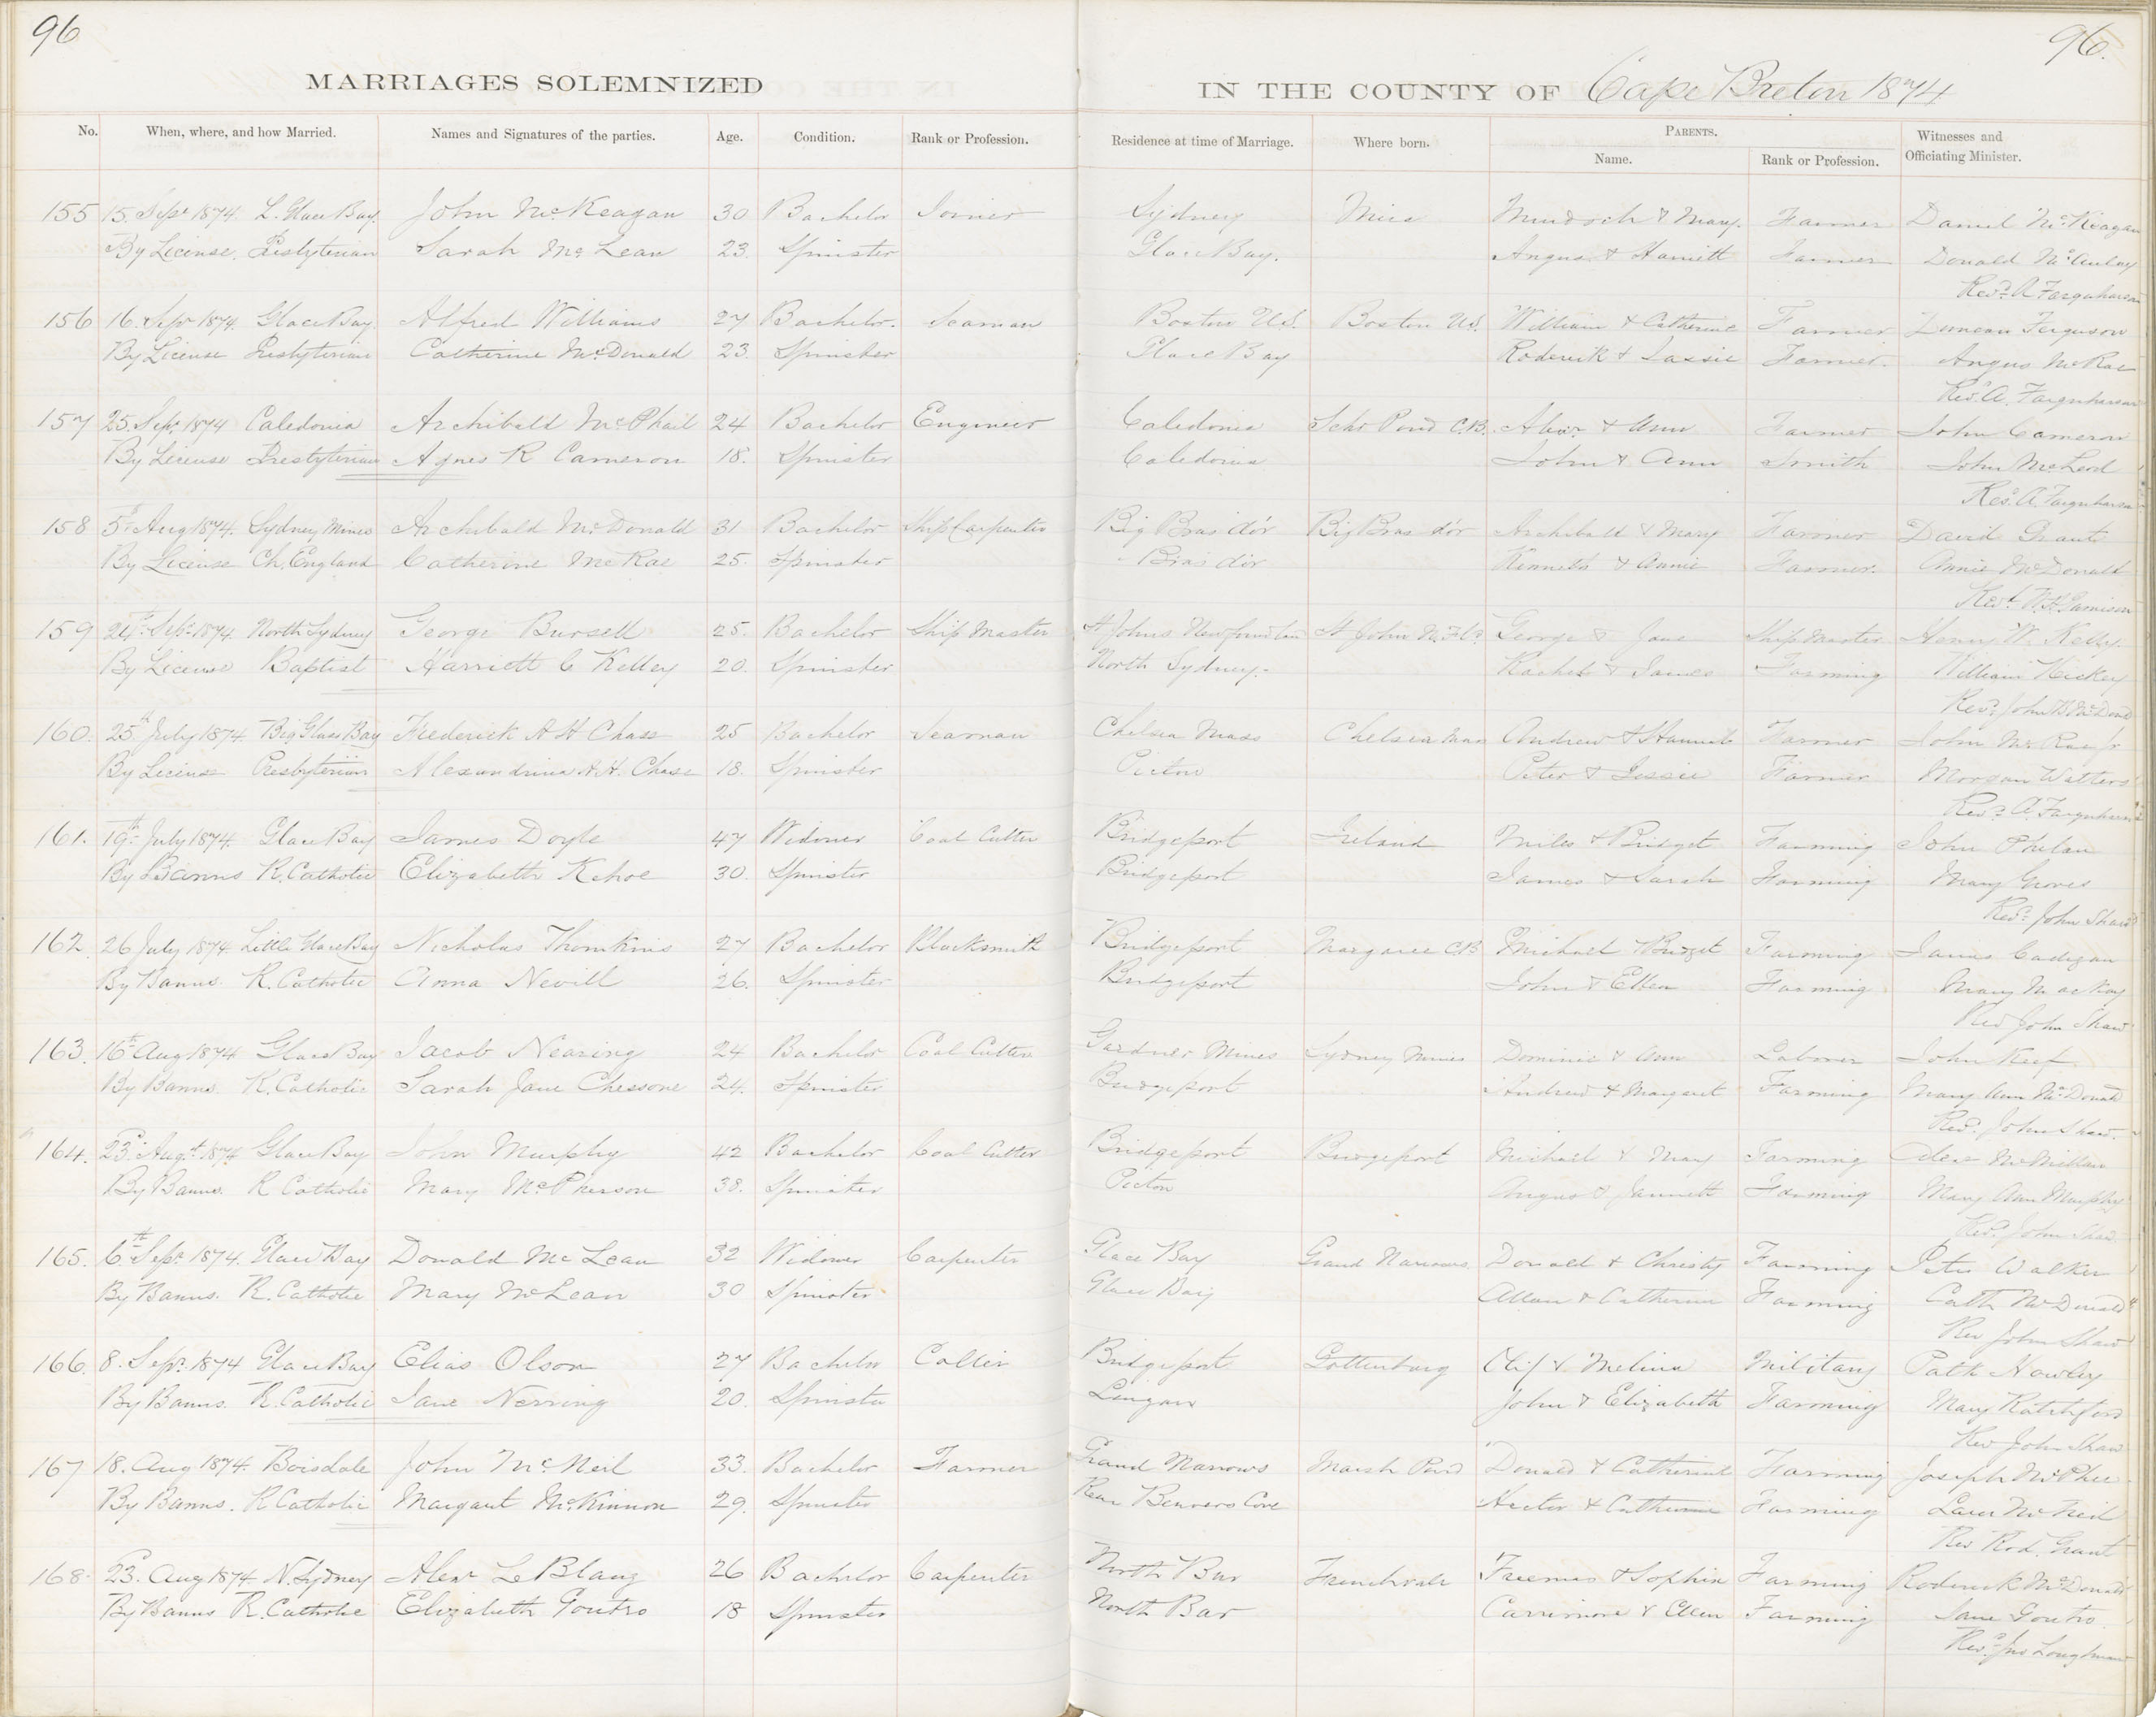 96
96.
MARRIAGES SOLEMNIZED IN THE COUNTY OF Cape Breton 1874
No. When, where, and how Married. Names and Signatures of the parties. Age. Condition. Rank or Profession. Residence at time of Marriage. Where born. PARENTS. Name. Rank or Profession. Witnesses and Officiating Minister.
155 15. Sepr 1874. L. Glace Bay. John McKeagan 30 Bachelor Joiner Sydney Mira Murdoch & Mary. Farmer Daniel McKeagan
By License. Presbyterian Sarah McLean 23. Spinster Glace Bay. Angus & Harriett Farmer Donald McAulay
Revd A Farquharson
156 16. Sepr 1874. Glace Bay. Alfred Williams 27 Bachelor. Seaman Boston U.S. Boston U.S. William & Catherine Farmer Duncan Ferguson
By License Presbyterian Catherine McDonald 23. Spinster Glace Bay Roderick & Farmer. Angus McRae
Rev. A. Farquharson
157 25. Sepr 1874 Caledonia Archibald McPhail 24 Bachelor Engineer Caledonia Pond C.B. Alexr & Ann Farmer John Cameron
By License Presbyterian Agnes R Cameron 18. Spinster Caledonia John & Ann Smith John McLeod
Rev. A. Farquharson
158 5th Aug 1874. Sydney Mines Archibald McDonald 31 Bachelor Ship Carpenter Big Bras d'or Big Bras d'or Archibald & Mary Farmer David Grant
By License Ch. England Catherine McRae 25. Spinster Bras d'or Kenneth & Annie Farmer. Annie McDonald
Revd Jamison
159 24th Sepr 1874. North Sydney George Bursell 25. Bachelor Ship Master St Johns Newfoundlan St John N.Fld. George & Jane Ship Master Henry W. Kelly.
By License Baptist Harriett C Kelley 20. Spinster North Sydney. Rachel & James Farming William Hickey
Revd John
160. 25th July 1874 Big Glace Bay Frederick A H Chase 25 Bachelor Seaman Chelsea Mass Chelsea Mass Andrew & Hannah Farmer John McRae Jr
By License Presbyterian Alexandrina A.H. Chase 18. Spinster Pictou Peter & Jessie Farmer Morgan Watters
Revd A. Farquharson
161. 19th July 1874. Glace Bay James Doyle 47 Widower Coal Cutter Bridgeport Ireland Miles & Bridget Farming John Phelan
By Banns R. Catholic Elizabeth Kehoe 30. Spinster Bridgeport James & Sarah Farming Mary Groves
Revd John Shaw
162. 26 July 1874 Little Glace Bay Nicholas Thomkins 27 Bachelor Blacksmith Bridgeport Margaree C.B Michael & Bridget Farming James Cadigan
By Banns R. Catholic Anna Nevill 26. Spinster Bridgeport John & Ellen Farming Mary MacKay
Rev John Shaw
163. 16th Aug 1874 Glace Bay Jacob Nearing 24 Bachelor Coal Cutter Gardner Mines Sydney Mines Dominic & Ann Laborer John Keef
By Banns. R. Catholic Sarah Jane Chessone 24. Spinster Bridgeport Andrew & Margaret Farming Mary Ann McDonald
Revd. John Shaw.
164. 23d Augt 1874 Glace Bay John Murphy 42 Bachelor Coal Cutter Bridgeport Bridgeport Michael & Mary Farming Alex McMillan
By Banns. R Catholic Mary McPherson 38. Spinster Pictou Angus & Jannett Farming Mary Ann Murphy
Revd. John Shaw
165. 6th Sepr 1874. Glace Bay Donald McLean 32 Widower Carpenter Glace Bay Grand Narrows Donald & Christy Farming Peter Walker
By Banns. R. Catholic Mary McLean 30 Spinster Glace Bay Allan & Catherine Farming Cath McDonald
Rev John Shaw
166. 8. Sepr. 1874 Glace Bay Elias Olson 27 Bachelor Collier Bridgeport Gottenburg Olif & Melina Military Patk Nowley
By Banns. R. Catholic Jane Nerring 20. Spinster Lingan John & Elizabeth Farming Mary Ratchford
Rev John Shaw
167 18. Aug 1874. Boisdale John McNeil 33. Bachelor Farmer Grand Narrows Marsh Pond Donald & Catherine Farming Joseph McPhee
By Banns. R Catholic Margaret McKinnon 29. Spinster Rear Beavers Cove Hector & Catherine Farming McNeil
Rev Rod. Grant
168. 23. Aug 1874 N. Sydney Alexr LeBlang 26 Bachelor Carpenter North Bar Frenchvale & Sophia Farming Roderick McDonald
By Banns R. Catholic Elizabeth Goutro 18 Spinster North Bar & Ellen Farming Jane Goutro.
Revd. Jno Loughman